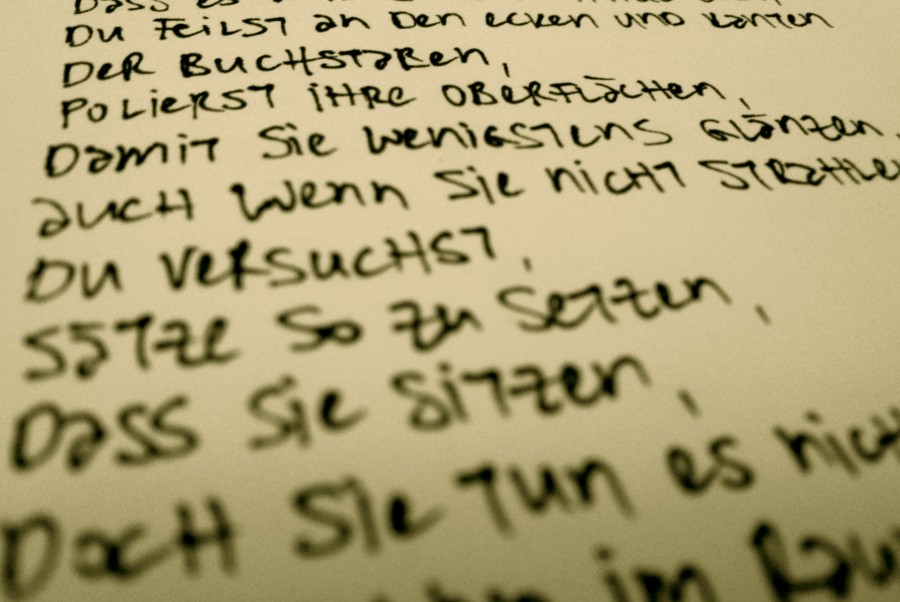 Dass es
Du Feilst an Den ecken und kanten
DeR BUCHSTaBen,
POLierST iHRe OBeRFLäCHen,
Damit Sie wenigstens Glänzen,
auch Wenn Sie nicht STRaHLe
Du VeRSUCHST,
SäTZe So Zu SeTZen,
Dass Sie SiTZen,
Doch Sie Tun es nich
im Rau